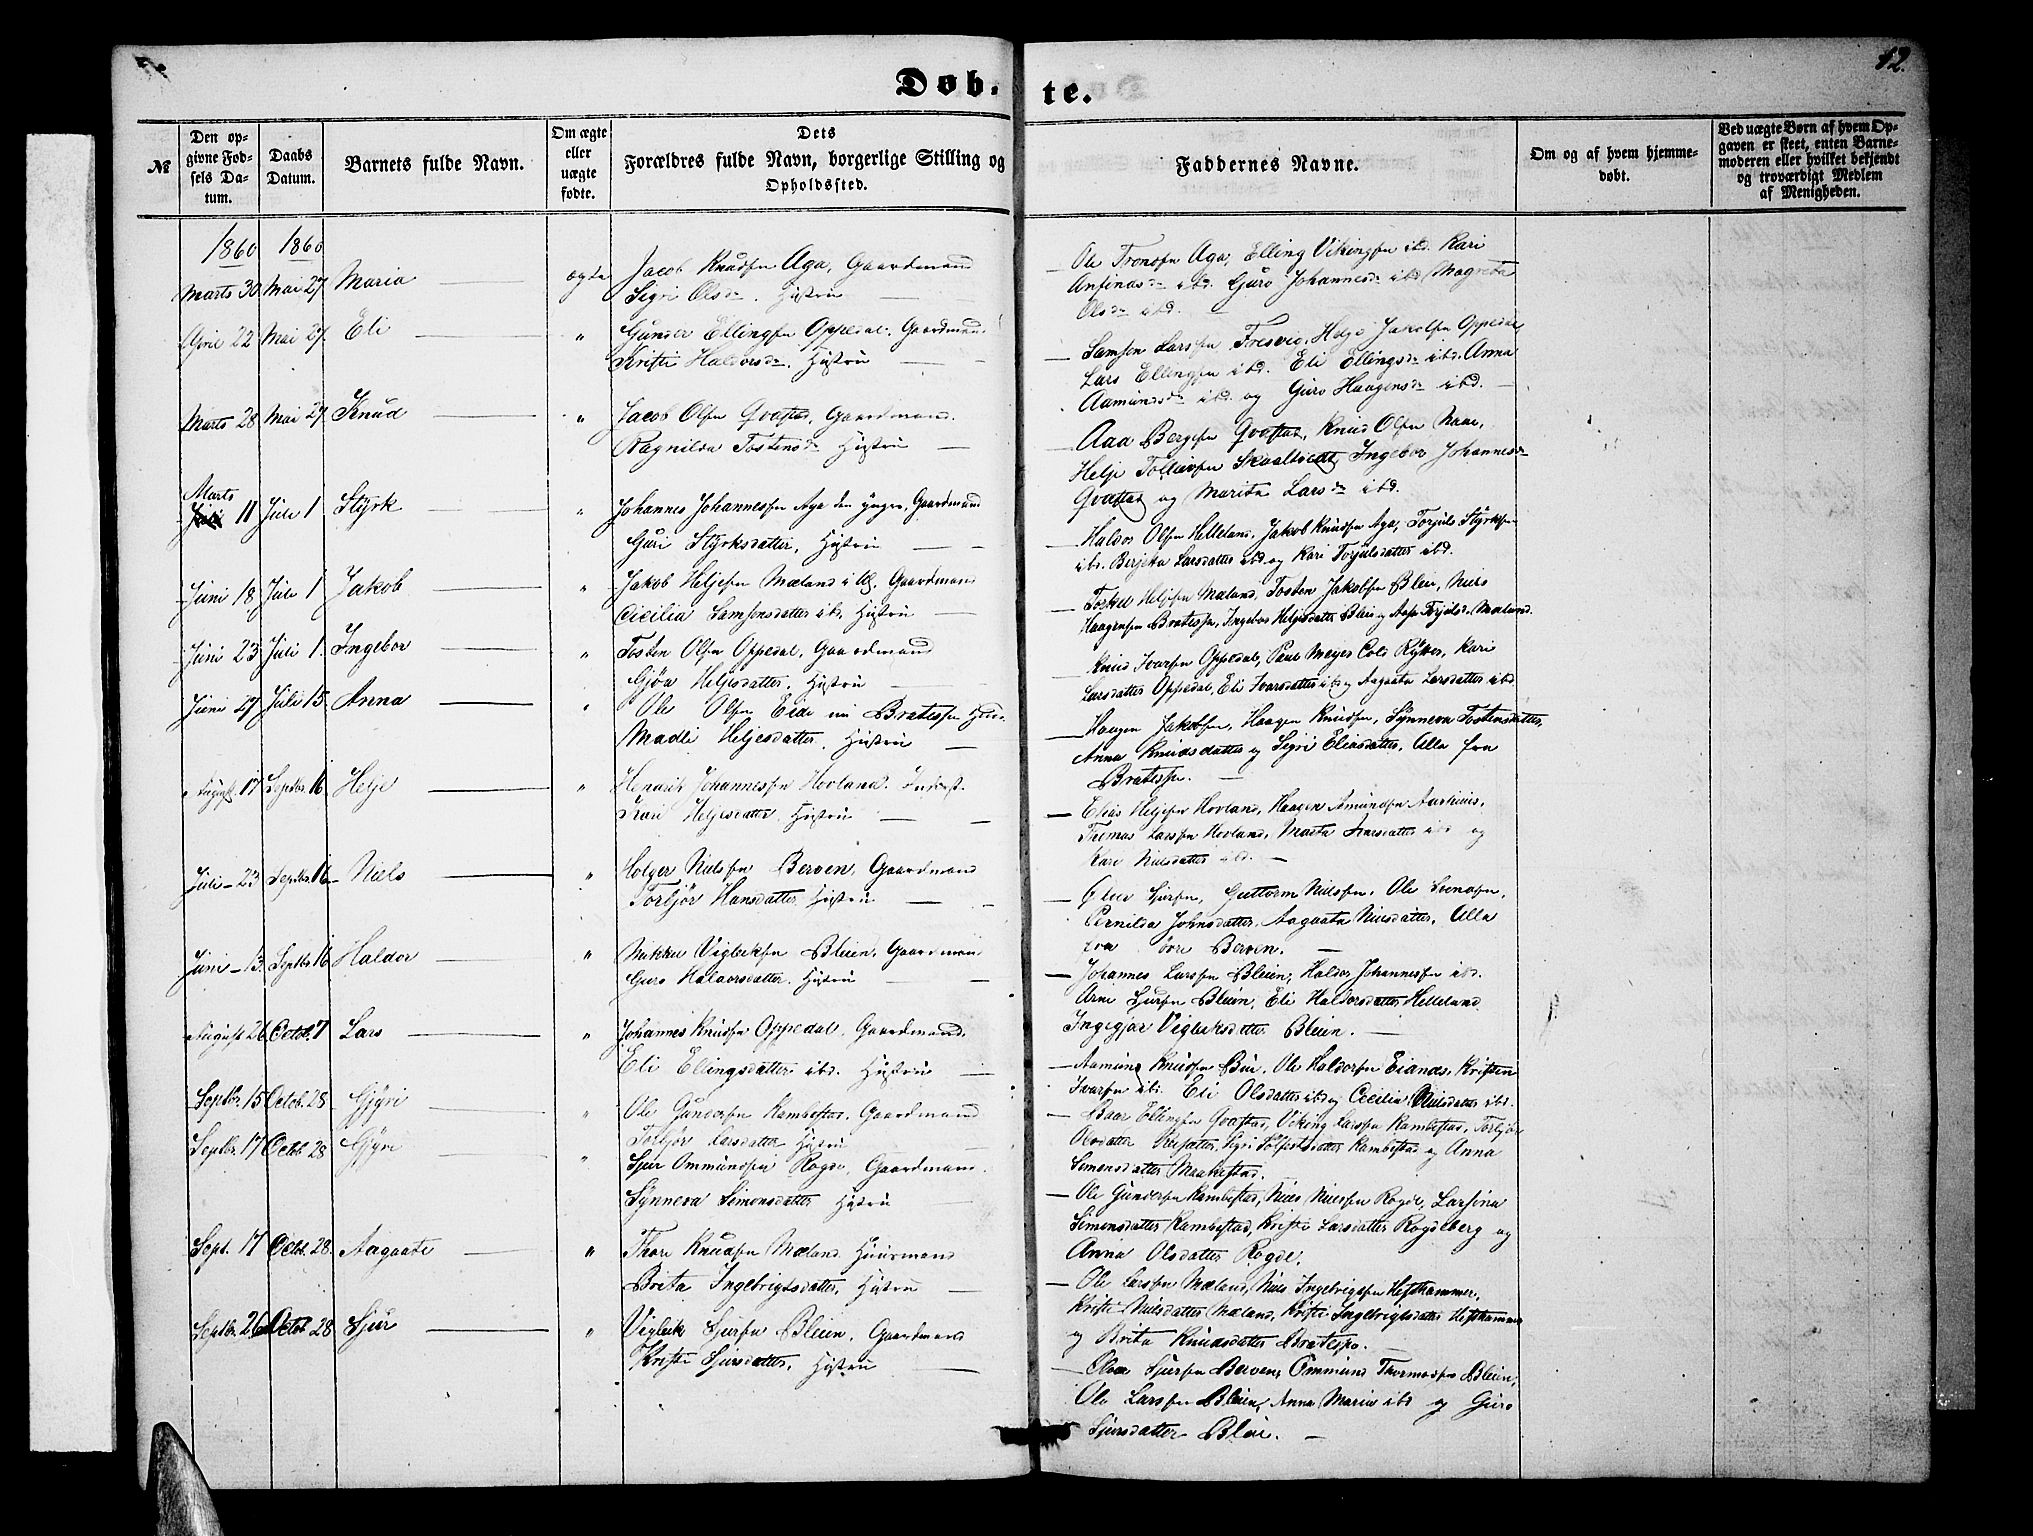 12.
Døb- te.
№
Den opgivne Fødsels Datum.
Daabs Datum.
Barnets fulde Navn.
Om ægte eller uægte fødte.
Dets Forældres fulde Navn, borgerlige Stilling og Opholdssted.
Faddernes Navne.
Om og af hvem hjemmedøbt.
Ved uægte Børn af hvem Opgaven er skeet, enten Barnemoderen eller hvilket bekjendt og troværdigt Medlem af Menigheden.
1860 1860
Marts 30 Mai 27 Maria ægte Jacob Knudsen Aga, Gaardmand
Sigri Olsdr. Hustru
Ole Tronsen Aga, Elling Vikingsen ibd. Kari
ibd. Guro Johannesdr ibd. Magreta
Olsdr ibd.
April 22 Mai 27 Eli " Gunder Ellingsen Oppedal, Gaardmand
Kristi Haldorsdr. Hustru
Samson Larssen Fresvig, Helje Jakobsen Oppedal
Lars Ellingsen ibd. Eli Ellingsdr ibd. Anna
Aamundsdr ibd. og Guro Haagensdr ibd.
Marts 28 Mai 27 Knud " Jacob Olsen Qvastad, Gaardmand.
Ragnilda Tostensdr Hustru
Aaa Bergesen Qvastad, Knud Olsen Naae,
Helje Tollevsen Ingebor Johannesdr
Qvastad og Marita Larsdr ibd.
Marts
11 Juli 1 Styrk " Johannes Johannessen Aga den yngre, Gaardmand
Guri Styrksdatter, Hustru
Haldor Olsen Helleland, Jakob Knudsen Aga, Torjuls Styrksen
ibd. Berjita Larsdatter ibd. og Kari Torjulsdatter ibd.
Juni 18 Juli 1 Jakob " Jakob Heljesen Mæland i Ul. Gaardmand
Cicilia Samsonsdatter ibd. Hustru
Torkel Heljesen Mæland, Tosten Jakobsen Bleie, Niels
Haagensen Bratespe, Ingebor Heljesdatter Bleie og Aase Torjulsd. Mæland.
Juni 23 Juli 1. Ingebor " Tosten Olsen Oppedal, Gaardmand
Gjøa Heljesdatter. Hustru
Knud Ivarsen Oppedal, Paul Meyer Cold Rykter, Kari
Larsdatter Oppedal, Eli Ivarsdatter ibd. og Aagaata Larsdatter ibd.
Juni 27 Juli 15. Anna " Ole Olsen Eide nu Bratespe
Madli Heljesdatter. Hustru
Haagen Jakobsen, Haagen Knudsen, Synneva Tostensdatter,
Anna Knudsdatter og Sigri Eliasdatter, Alle fra
Bratespe.
August 17 Septbr. 16 Helje " Henrik Johannessen Hovland. Inderst.
Kari Heljesdatter. Hustru
Elias Heljesen Hovland, Haagen Amundsen Aarhuus,
Thomas Larssen Hovland, Marta Larsdatter ibd og
Kari Nielsdatter ibd.
Juli 23 Septbr. 16 Niels " Holger Nielssen Berven, Gaardmand
Torbjør Hansdatter, Hustru
Sjursen, Guttorm Nielssen, Ole
Pernilda Johnsdatter, Aagaata Nielsdatter, Alle
fra øvre Berven.
Juni 13. Septbr 16 Haldor " Viglecksen Bleien, Gaardmand
Guro Haldorsdatter. Hustru
Johannes Larssen Bleien, Haldor Johannessen ibd.
Arne Sjursen Bleien, Eli Haldorsdatter Helleland
Ingegjør Viglecksdatter Bleien.
August 26 Octob. 7 Lars " Johannes Knudsen Oppedal, Gaardmand.
Eli Ellingsdatter ibd. Hustru
Aamund Knudsen Bu, Ole Haldorsen Eianæs, Kristen
Ivarsen ibd. Eli Olsdatter ibd og Cecilia Nielsdatter ibd.
Septbr. 15 Octob. 28 Gjyri " Ole Gundersen Kambestad, Gaardmand
Torbjør Larsdatter Hustru
Baar Ellingsen Qvastad, Viking Larssen Kambestad, Torbjør
Olsdatter Sigri Kambestad og Anna
Simonsdatter Maakestad.
Septbr. 17 Octb 28 Gjyri " Sjur Ommundsen Rogde, Gaardmand.
Synneva Simonsdatter Hustru
Ole Gundersen Kambestad, Niels Nielssen Rogde, Larsina
Simonsdatter Kambestad, Kristi Larsdatter Rogdeberg og
Anna Olsdatter Rogde.
Sept. 17 Octb. 28. Aagaate " Thore Knudsen Mæland Huusmand
Brita Ingebrigtsdatter, Hustru
Ole Larssen Mæland, Niels Ingebrigtsen Hesthammer,
Kristi Nielsdatter Mæland, Kristi Ingebrigtsdatter Hesthammer
og Brita Knudsdatter Bratespe.
Septbr. 26 Octob 28 Sjur " Vigleik Sjursen Bleien, Gaardmand
Kristi Sjursdatter, Hustru
Olav Sjursen Berven, Ommund Thormodsen Bleien,
Ole Larssen Bleien, Anna Maria ibd og Guro
Sjursdatter Bleie.